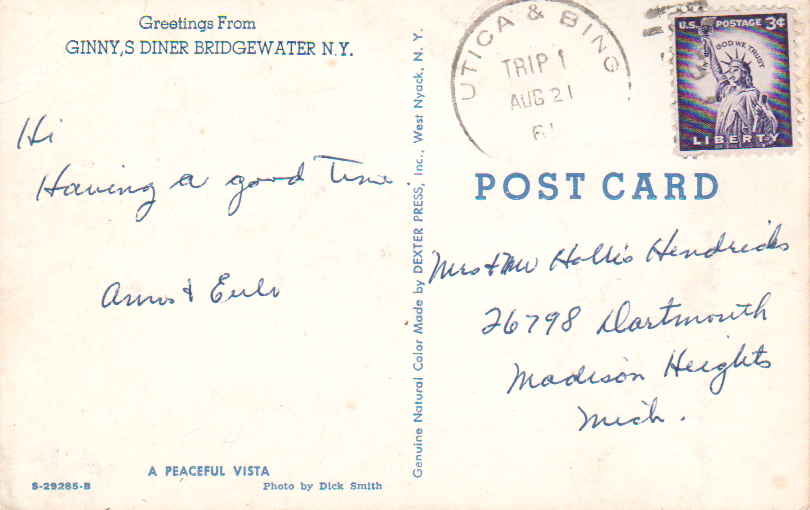 Greetings From
GINNY,S DINER BRIDGEWATER N.Y.
Hi
Having a good Time.
& 
A PEACEFUL VISTA
S-29285-B
Photo by Dick Smith
Genuine Natural Color Made by DEXTER PRESS, Inc., West Nyack, N. Y.
UTICA & BING
TRIP 1
AUG 21
61
U.S. POSTAGE 3¢
IN GOD WE TRUST
LIBERTY
POST CARD
Mrs & Mr Hollis Hendricks
26798 Dartmouth
Madison Heights
Mich.